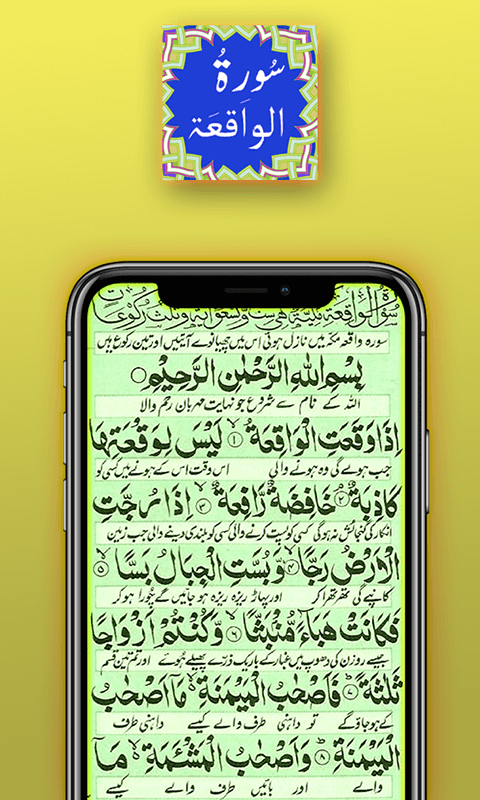 سُورةُ
الواقعَة
سورہ واقعہ مکہ میں نازل ہوئی اس میں چھیانوے آیتیں اور تین رکوع ہیں
بِسْمِ اللهِ الرَّحْمٰنِ الرَّحِيْمِ
اللہ کے نام سے شروع جو نہایت مہربان رحم والا
اِذَا وَقَعَتِ الْوَاقِعَةُ ۙ‏۱ لَيْسَ لِوَقْعَتِهَا
جب ہولے گی وہ ہونے والی اس وقت اس کے ہونے میں کسی کو
كَاذِبَةٌ ۘ‏۲ خَافِضَةٌ رَّافِعَةٌ ۙ‏۳ اِذَا رُجَّتِ
انکار کی گنجائش نہ ہوگی کسی کو پست کرنے والی کسی کو بلندی دینے والی جب زمین
الْاَرْضُ رَجًّا ۙ‏۴ وَّبُسَّتِ الْجِبَالُ بَسًّا ۙ‏۵
کانپے گی تھرتھرا کر اور پہاڑ ریزہ ریزہ ہو جائیں گے چُورا ہو کر
فَكَانَتْ هَبَآءً مُّنْۢبَثًّا ۙ‏۶ وَّكُنْتُمْ اَزْوَاجًا
جیسے روزن کی دھوپ میں غبار کے باریک ذرّے پھیلے ہُوئے اور تم تین قسم
ثَلٰثَةً ؕ‏۷ فَاَصْحٰبُ الْمَيْمَنَةِ ۙ مَاۤ اَصْحٰبُ
کے ہو جاؤ گے تو داہنی طرف والے کیسے داہنی طرف
الْمَيْمَنَةِ ؕ‏۸ وَاَصْحٰبُ الْمَشْئَمَةِ ۙ مَاۤ
والے اور بائیں طرف والے کیسے